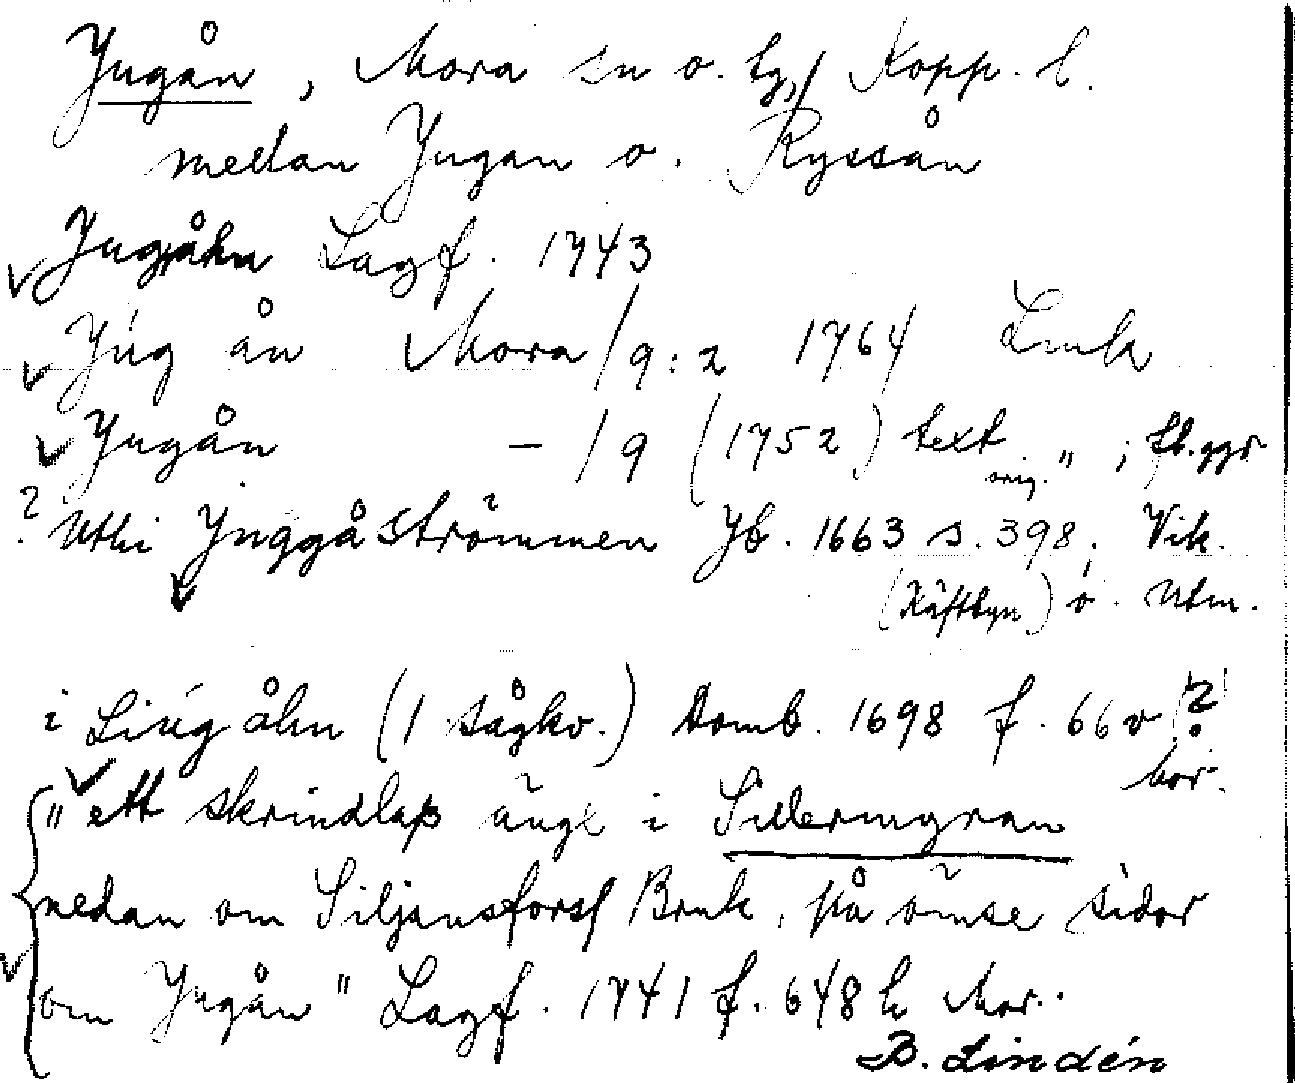 Jugån, Mora sn o. tg, Kopp. l.
mellan Jugan o. Ryssån
Jugåhn Lagf. 1743
Júg ån Mora/9:2 1764 Link
Jugån — /9 (1752) text orig. " ; fl. ggr
? Uthi Jnggåströmmen Jb. 1663 s. 398. Vik.
(Häftbyn) ö. Utm.
i Liúg åhn (1 sågkv.) Domb. 1698 f. 66 v ?
Mor.
" ett skrindlaß ängl i Sillermyran
nedan om Siljansforsf Bruk, på ömse sidor
om Jugån" Lagf. 1741 f. 648 h Mor.
B. Lindén